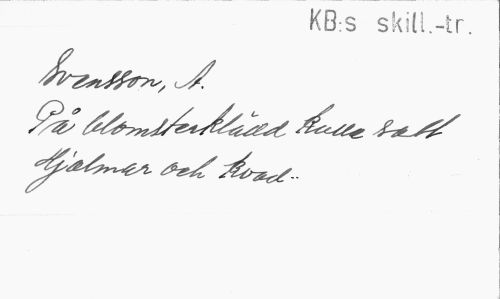 KB:s skill.-tr.
Svensson, A.
På blomsterklädd kulle satt
Hjalmar och kvad..